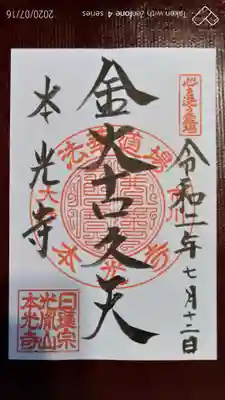 2020/07/16
Taken with Zenfone 4 series
令和二年七月十二日
金大古久天
本光寺
法華道場
日蓮宗
光胤山
本光寺